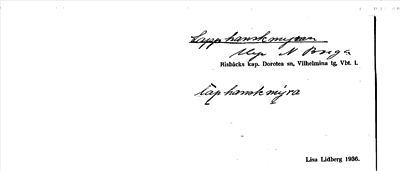 Lapphanskmyran
Myr N Borga
Risbäcks kap. Dorotea sn, Vilhelmina tg, Vbt. l.
lap hansk mýra
Lisa Lidberg 1936.